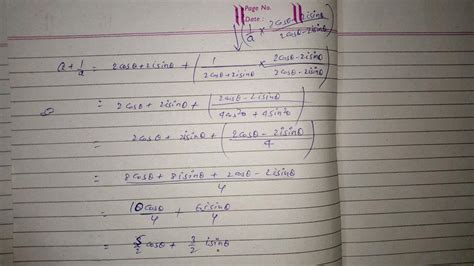 Page No.
Date :
(1/a × (2cosθ - 2isinθ)/(2cosθ - 2isinθ))
a + 1/a = 2cosθ + 2isinθ + (1/(2cosθ + 2isinθ) × (2cosθ - 2isinθ)/(2cosθ - 2isinθ))
= 2cosθ + 2isinθ + ((2cosθ - 2isinθ)/(4cos²θ + 4sin²θ))
= 2cosθ + 2isinθ + ((2cosθ - 2isinθ)/4)
= (8cosθ + 8isinθ + 2cosθ - 2isinθ)/4
= 10cosθ/4 + 6isinθ/4
= 5/2 cosθ + 3/2 isinθ